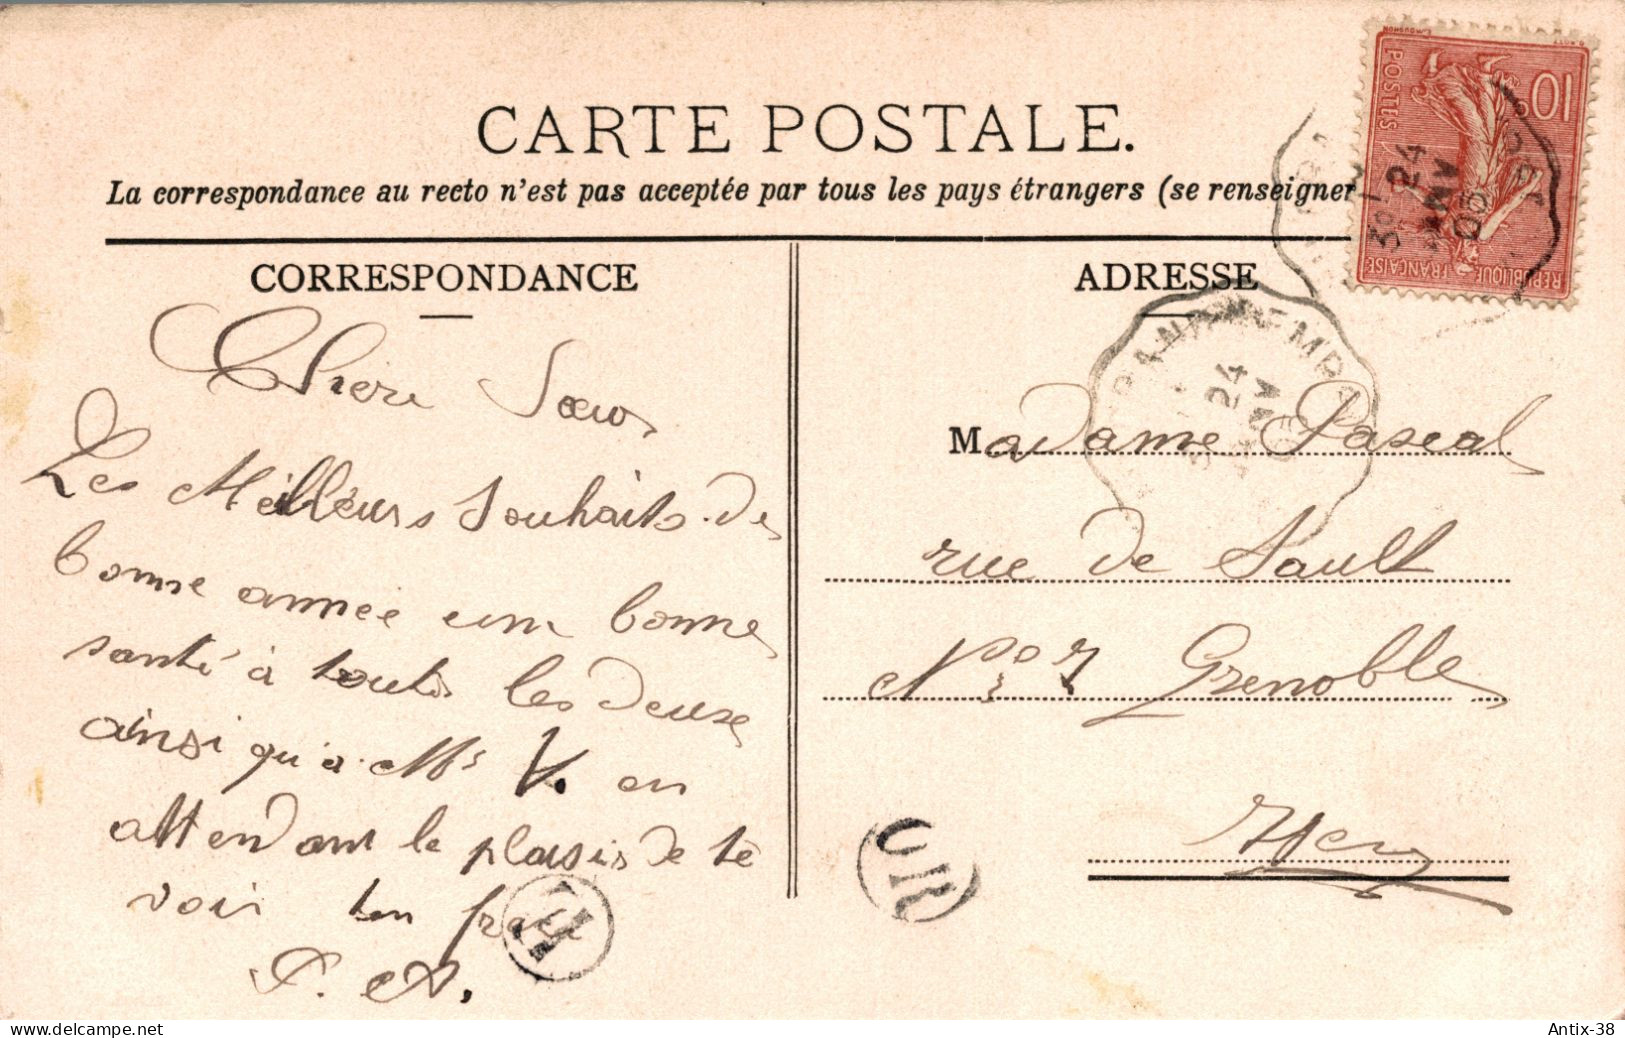 CARTE POSTALE.
La correspondance au recto n'est pas acceptée par tous les pays étrangers (se renseigner
CORRESPONDANCE
Chère Sœur
Les Meilleurs Souhaits de
bonne année une bonne
santé à toutes les deux
ainsi qu'à Mr V. en
attendant le plaisir de te
voir ton frère
P. A.
ADRESSE
Madame Pascal
rue de Sault
No 7 Grenoble
Isère
10c
POSTES
REPUBLIQUE FRANÇAISE
24
JANV
05
24
JANV
OR
H
www.delcampe.net
Antix-38